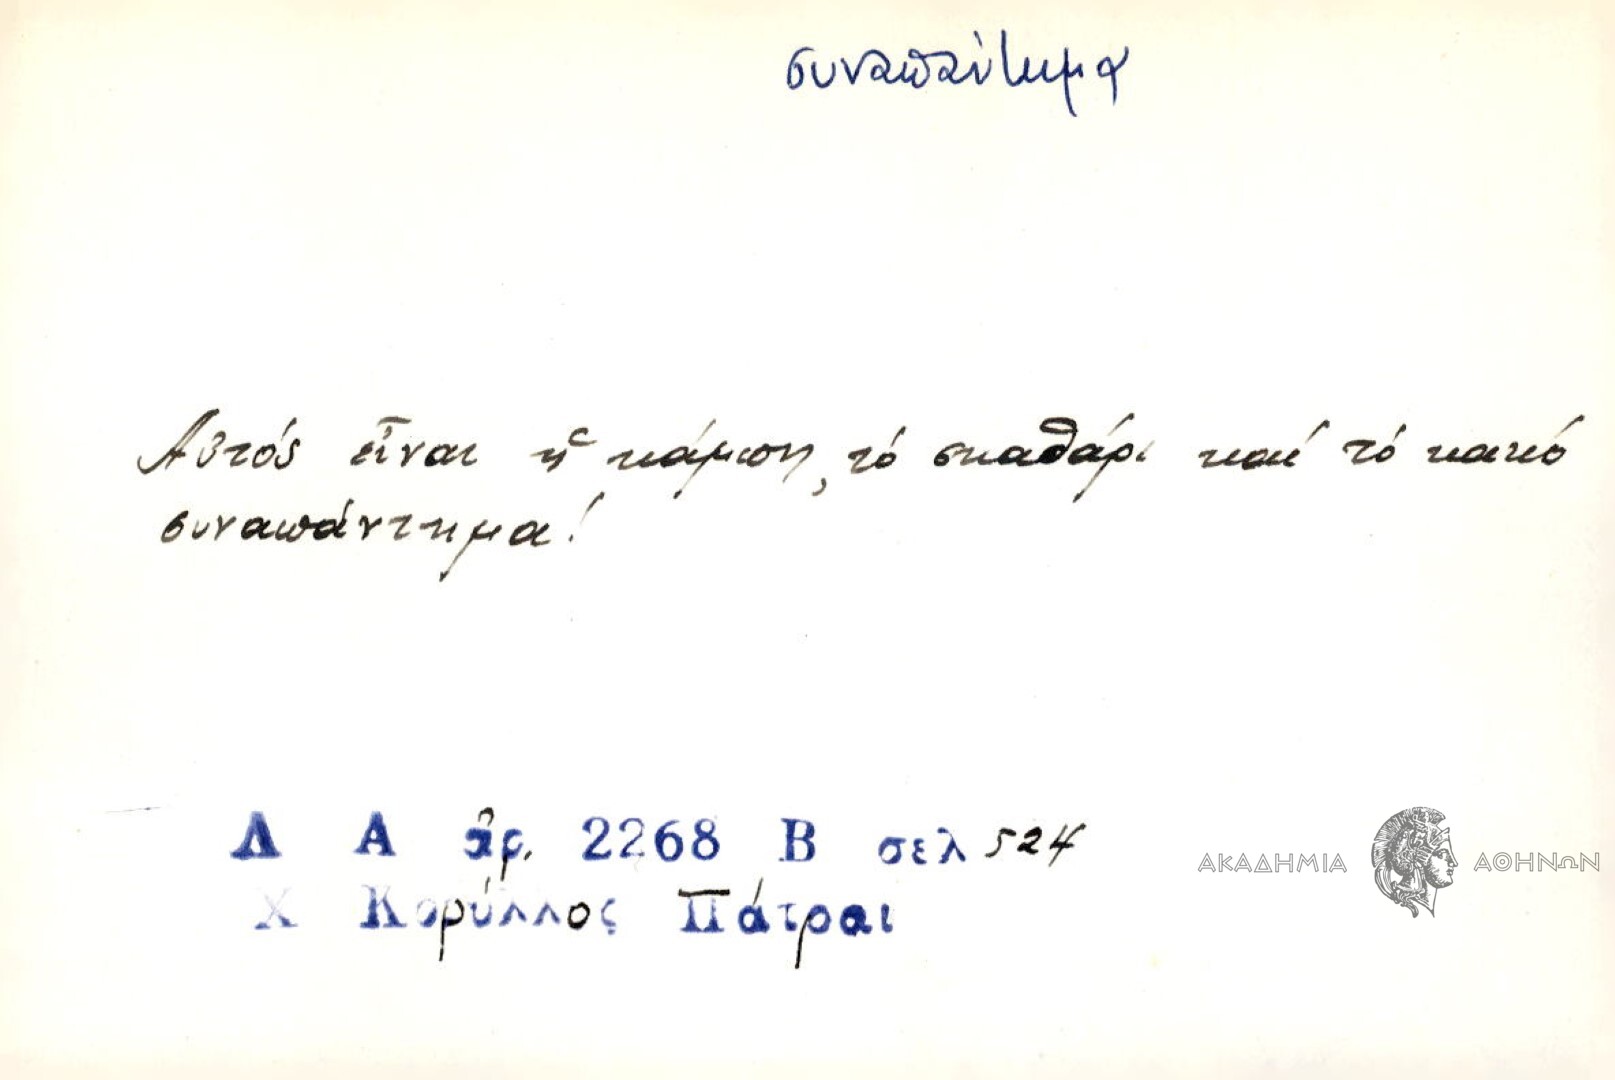 συναπάντημα
Αὐτός εἶναι ἡ κάμιση, τό σκαθάρι καί τό κακό
συναπάντημα!
Λ Α ἀρ. 2268 Β σελ 524
Χ Κορύλλος Πάτραι
ΑΚΑΔΗΜΙΑ ΑΘΗΝΩΝ